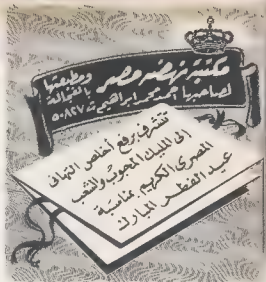 مكتبة نهضة مصر ومطبعتها بالفجالة
لصاحبها أحمد محمد إبراهيم ت ٥٠٨٢٧
تتشرف برفع أخلص التهانى
إلى المليك المحبوب والشعب
المصرى الكريم بمناسبة
عيد الفطر المبارك